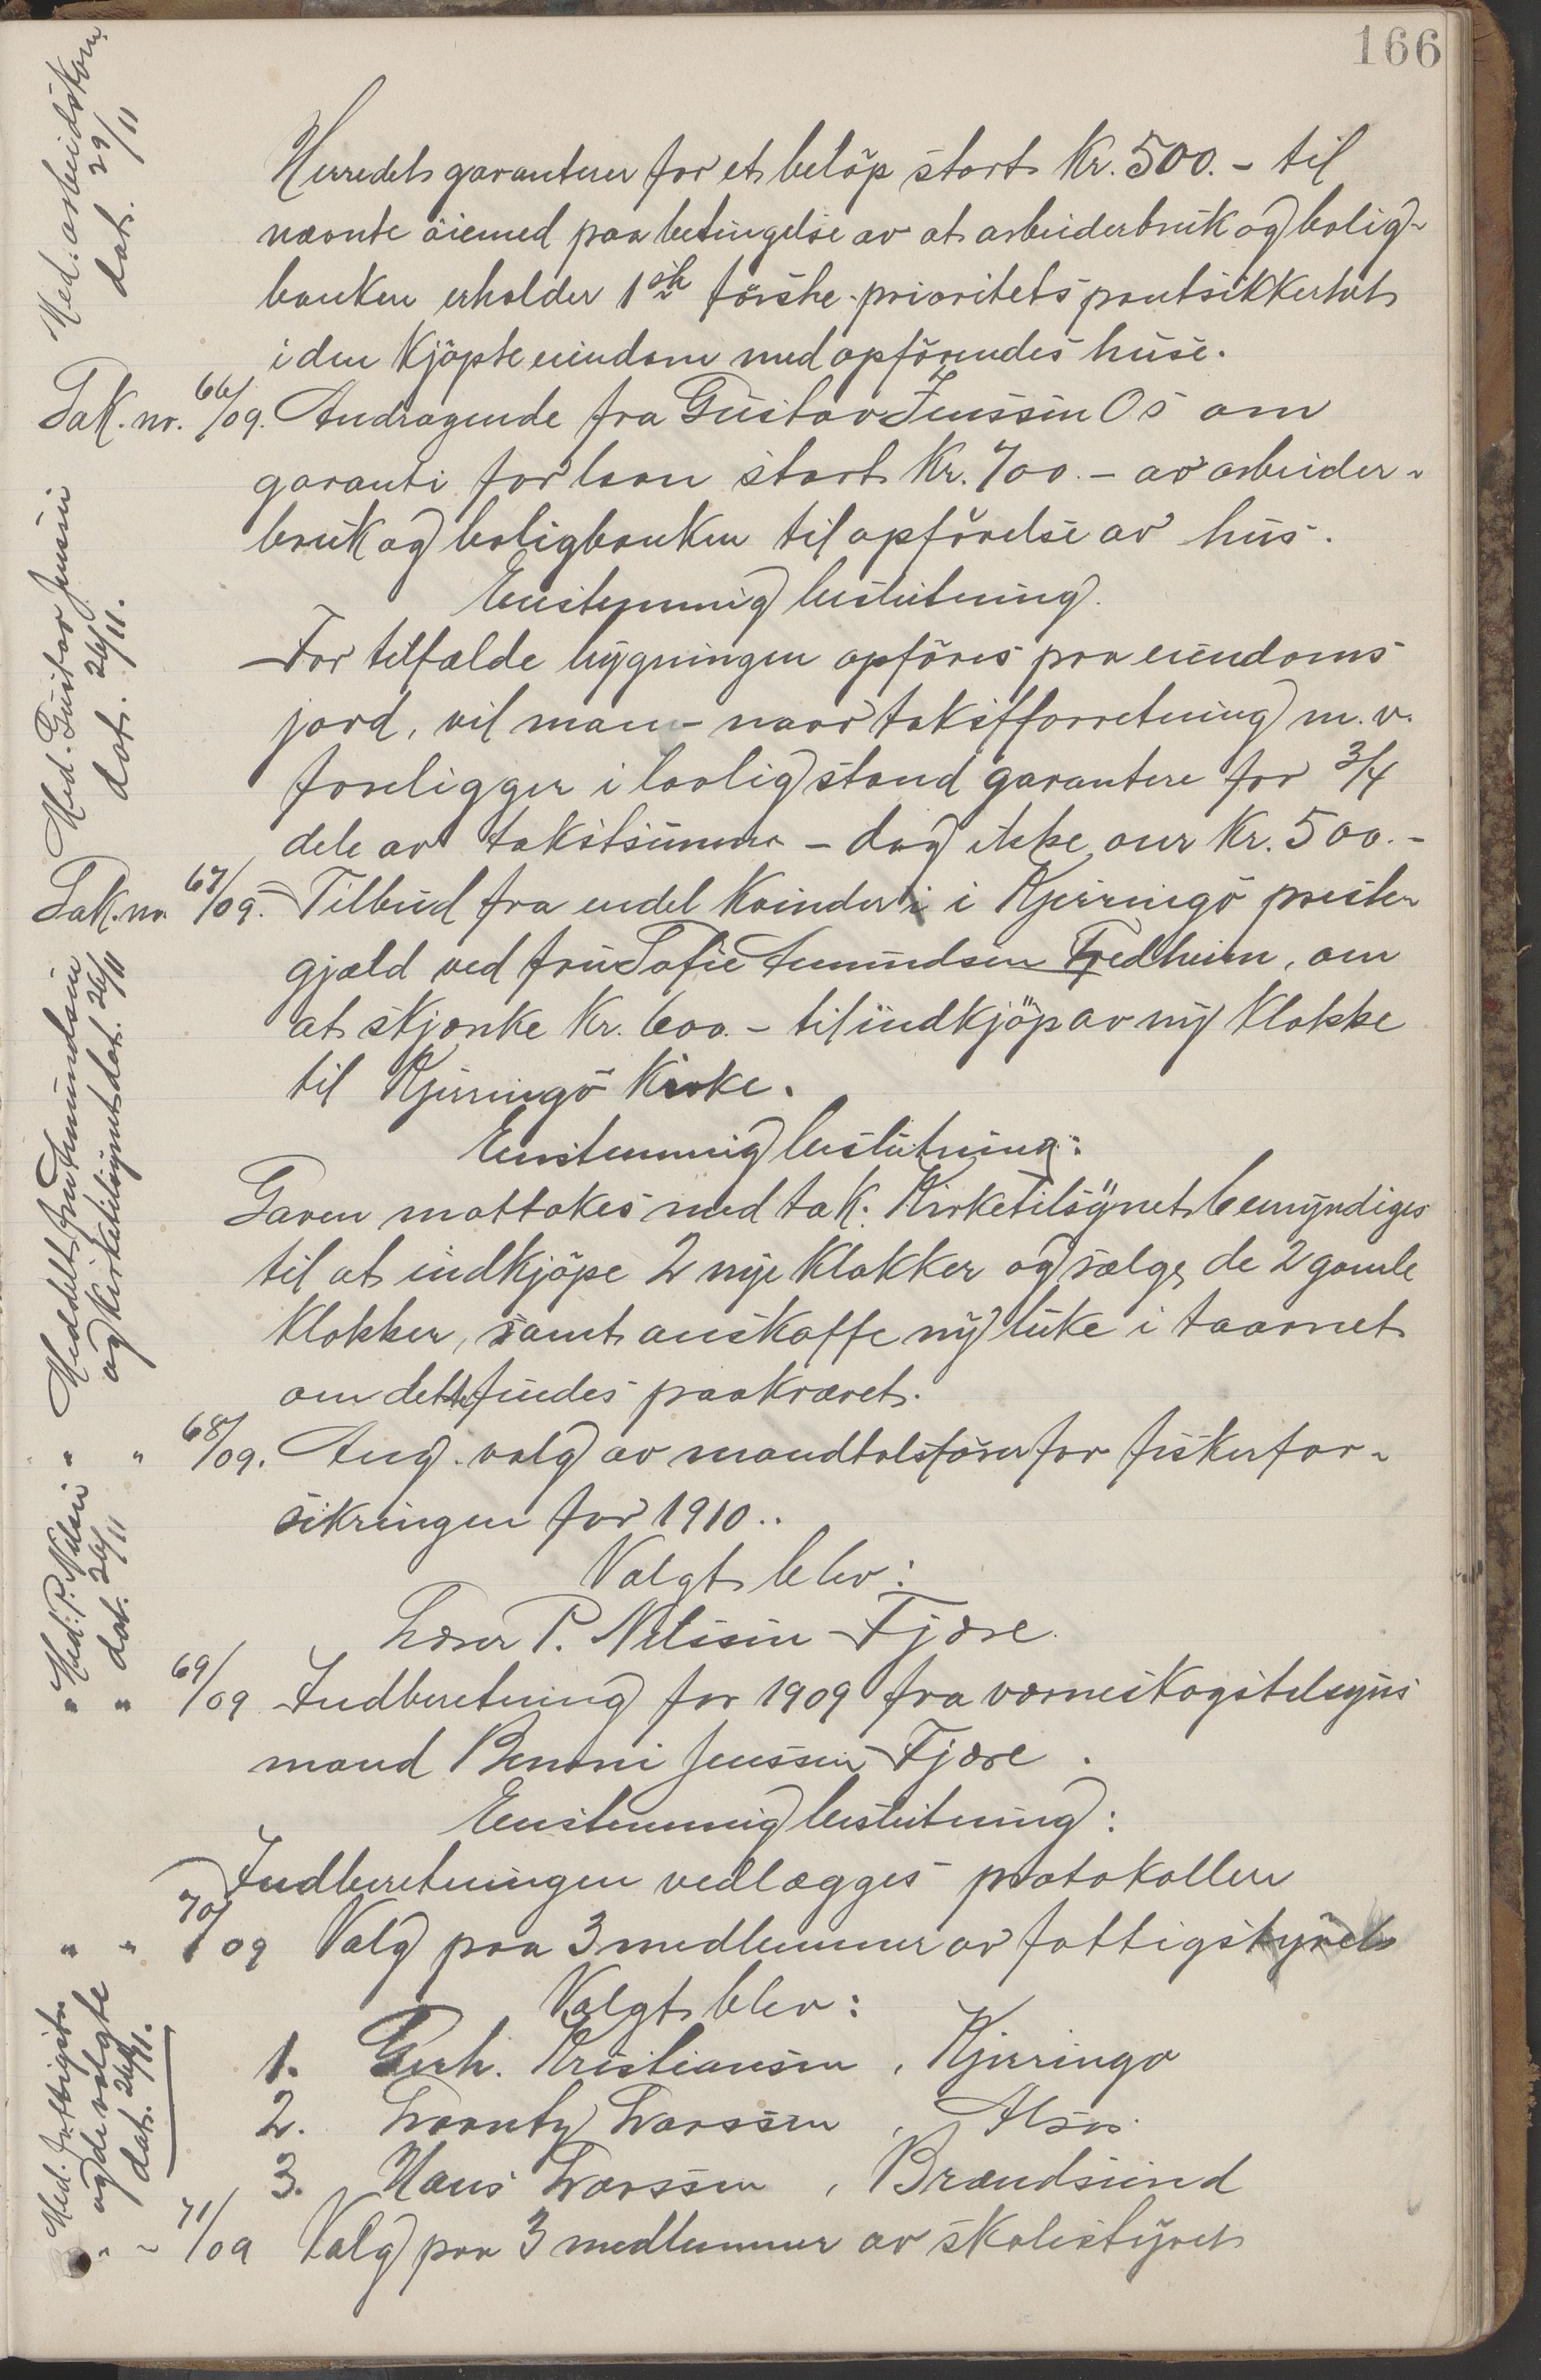 166
Herredet garanterer for et beløp stort Kr. 500.- til
nævnte øiemed paa betingelse av at arbeiderbruk og bolig-
banken erholder 1ste første prioritets pantsikkerhet
i den kjøpte eiendom med opførendes huse.
Sak. nr. 66/09. Andragende fra Gustav Jenssen Os om
garanti for laan stort Kr. 700.- av arbeider-
bruk og boligbanken til opførelse av hus.
Enstemmig beslutning.
For tilfælde bygningen opføres paa eiendoms
jord, vil man - naar takstforretning m.v.
foreligger i lovlig stand garantere for 3/4
dele av takstsummen - dog ikke over Kr. 500.-
Sak. nr. 67/09. Tilbud fra endel kvinder i Kjerringø preste-
gjæld ved fru Sofie Amundsen Fredheim, om
at skjænke Kr. 600.- til indkjøp av ny klokke
til Kjerringø Kirke.
Enstemmig beslutning:
Gaven mottakes med tak. Kirketilsynet bemyndiges
til at indkjøpe 2 nye klokker og sælge de 2 gamle
klokker, samt anskaffe ny luke i taarnet
om dette findes paakrævet.
" " 68/09. Ang. valg av mandtalsfører for fiskerfor-
sikringen for 1910..
Valgt blev:
Lærer P. Nilssen Fjære.
" " 69/09 Indberetning for 1909 fra verneskogstilsyns
mand Benoni Jenssen Fjære.
Enstemmig beslutning:
Indberetningen vedlægges protokollen
" " 70/09 Valg paa 3 medlemmer av fattigstyret
Valgt blev:
1. Gerh. Kristiansen, Kjerringø
2. Larssen,
3. Hans Larssen, Brændsund
" " 71/09 Valg paa 3 medlemmer av skolestyret
Med. arbeidskom.
dat. 29/11
Med. Gustav Jenssen
dat. 26/11.
Meddelt fru Amundsen
og kirketilsynet dat. 26/11
Med. P. Nilsen
dat. 26/11
Med. fattigstn
og de valgte
dat. 26/11.